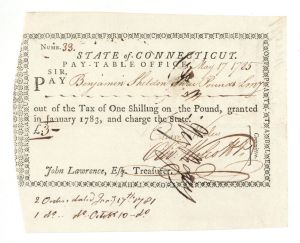 NUMB. 33.
STATE of CONNECTICUT.
PAY-TABLE OFFICE, May 17 1785
SIR,
PAY Benjamin Sheldon Three Pounds
out of the Tax of One Shilling on the Pound, granted
in January 1783, and charge the State.
£3
John Lawrence, Esq. Treasurer.
2 Orders dated 17th 1781
1 do